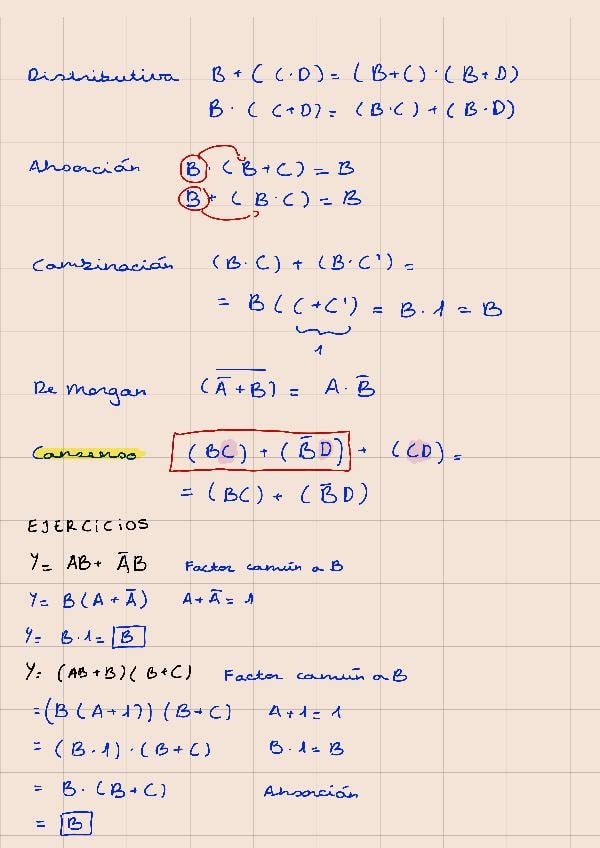 Distributiva B + (C·D) = (B+C)·(B+D)
B·(C+D) = (B·C) + (B·D)
Absorción B·(B+C) = B
B+(B·C) = B
Combinación (B·C) + (B·C') =
= B(C+C') = B·1 = B
1
De Morgan (A̅+B)̅ = A·B̅
Consenso (BC) + (B̅D) + (CD) =
= (BC) + (B̅D)
EJERCICIOS
Y= AB+ A̅B Factor común a B
Y= B(A+A̅) A+A̅=1
Y= B·1= B
Y: (AB+B)(B+C) Factor común a B
=(B(A+1))(B+C) A+1=1
= (B·1)·(B+C) B·1=B
= B·(B+C) Absorción
= B